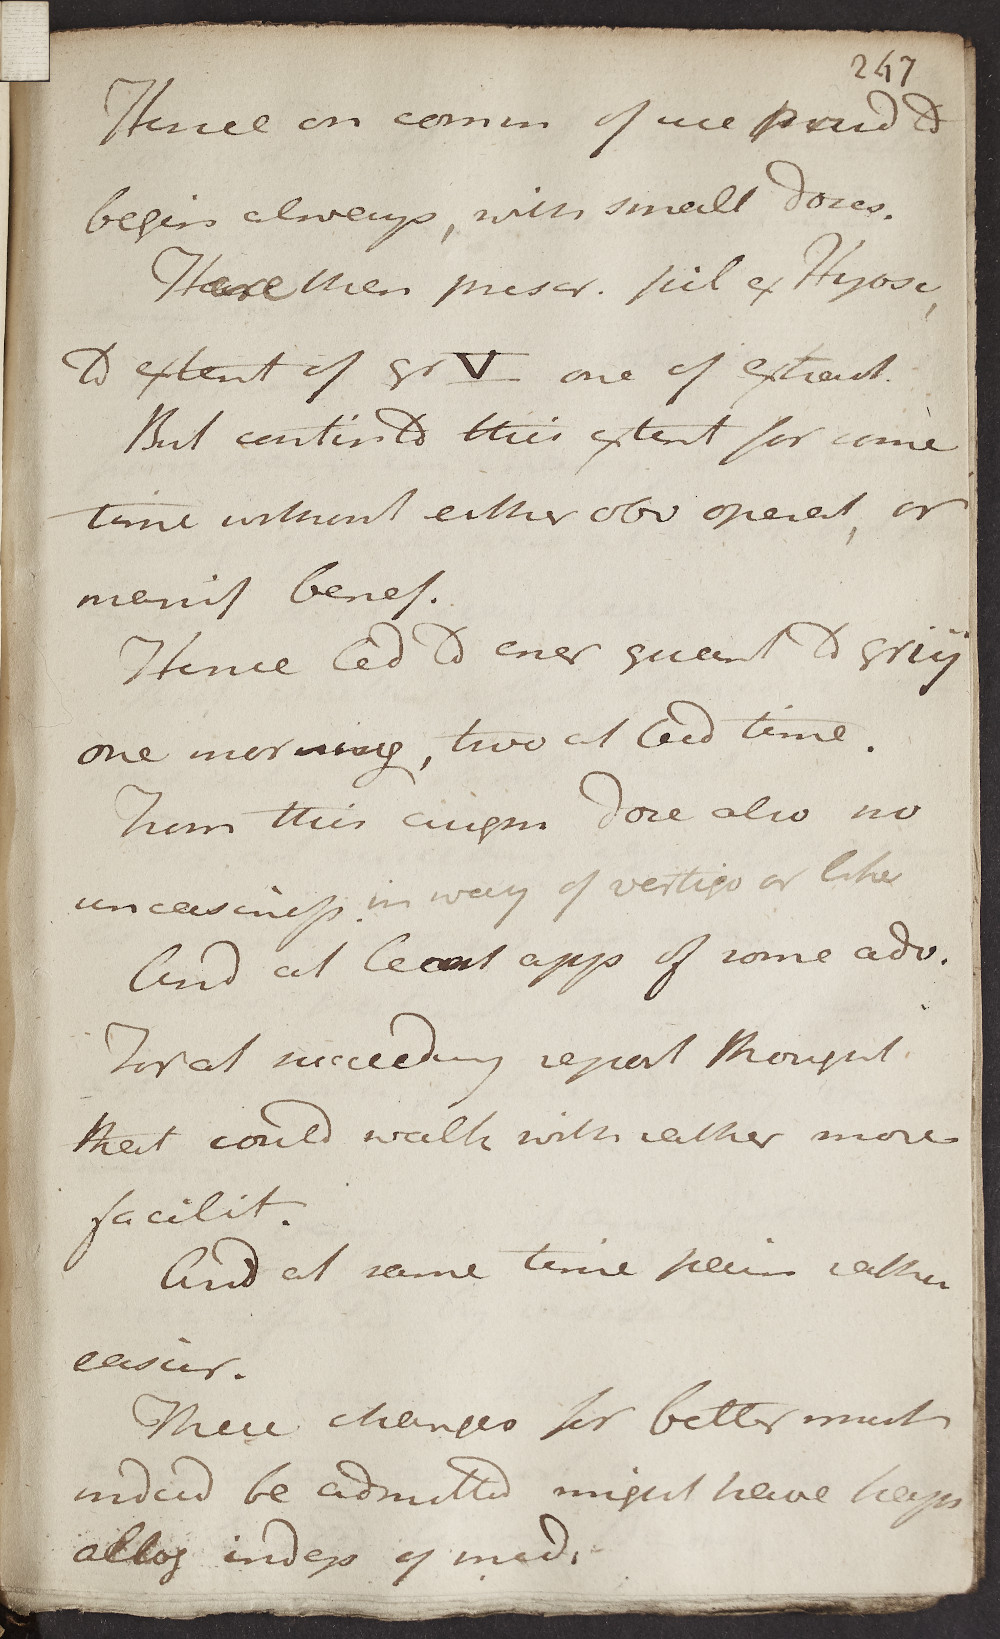 247
Hence on commen of use prud to
begin always, with small doses.
Here then prescr. pil ex Hyosc,
to extent of gr V one of extract.
But contin to this extent for some
time without either obv operat, or
manif benef.
Hence led to encr quant to gr iij
one morning, two at bed time.
From this augm dose also no
uneasiness in way of vertigo or like
And at least app of some adv.
For at succeeding report thought
that could walk with rather more
facilit.
And at same time pain rather
easier.
These changes for better must
indeed be admitted might have hapn
altog indep of med.